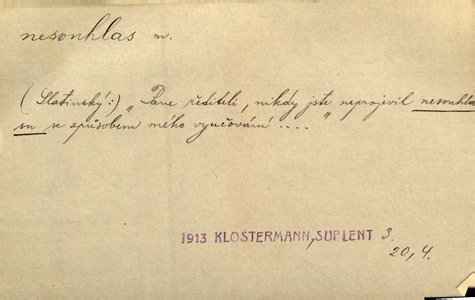 nesouhlas m.
(Slatinský:) „Pane řediteli, nikdy jste neprojevil nesouhla
su se způsobem mého vyučování ...."
1913 KLOSTERMANN, SUPLENT 3.
20, 4.